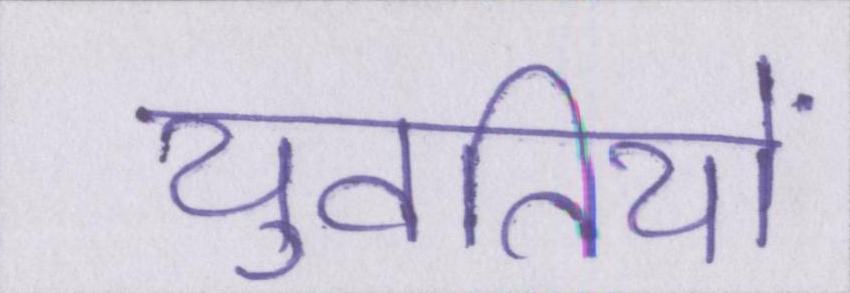 युवतियों